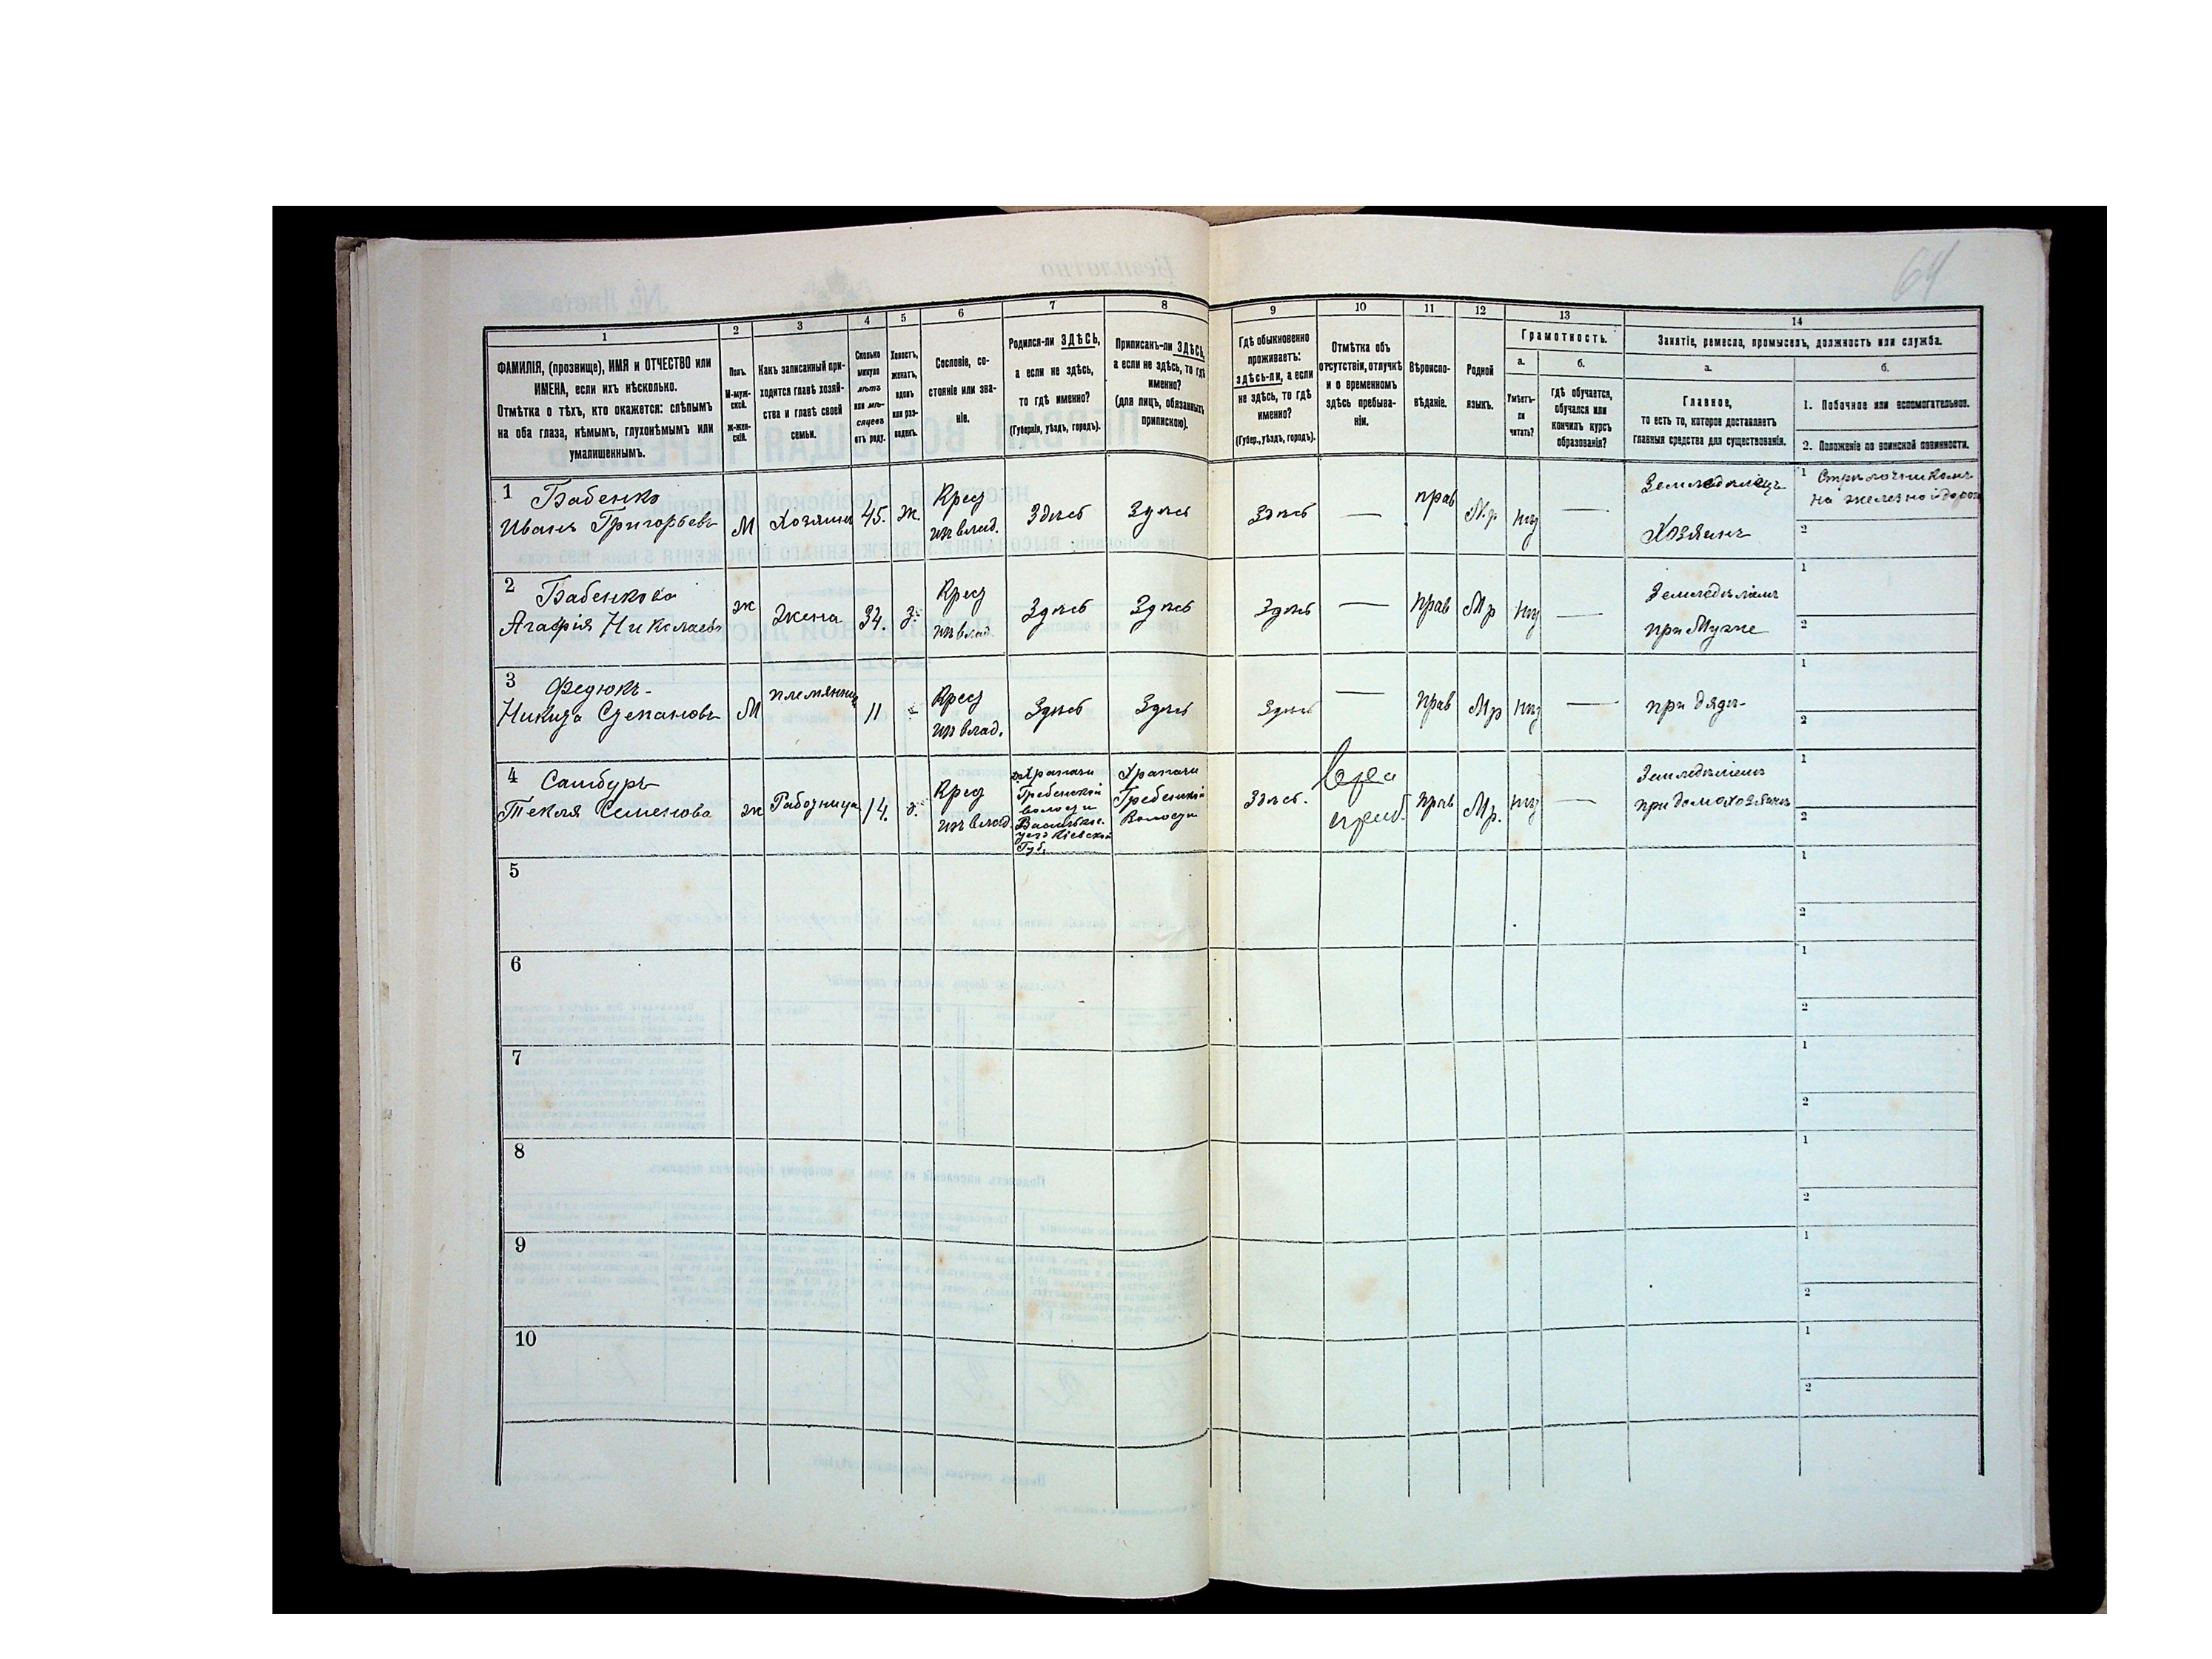 64
1
2
3
4
5
6
7
8
9
10
11
12
13
14
ФАМИЛІЯ, (прозвище), ИМЯ и ОТЧЕСТВО или
ИМЕНА, если ихъ нѣсколько.
Отмѣтка о тѣхъ, кто окажется: слѣпымъ
на оба глаза, нѣмымъ, глухонѣмымъ или
умалишеннымъ.
Полъ.
М-муж-
ской.
ж-жен-
скій.
Какъ записанный при-
ходится главѣ хозяй-
ства и главѣ своей
семьи.
Сколько
минуло
лѣтъ
или мѣ-
сяцевъ
отъ роду.
Холостъ,
женатъ,
вдовъ
или раз-
веденъ.
Сословіе, со-
стояніе или зва-
ніе.
Родился-ли ЗДѢСЬ,
а если не здѣсь,
то гдѣ именно?
(Губернія, уѣздъ, городъ).
Приписанъ-ли ЗДѢСЬ,
а если не здѣсь, то гдѣ
именно?
(для лицъ, обязанныхъ
припискою).
Гдѣ обыкновенно
проживаетъ:
здѣсь-ли, а если
не здѣсь, то гдѣ
именно?
(Губер., уѣздъ, городъ).
Отмѣтка объ
отсутствіи, отлучкѣ
и о временномъ
здѣсь пребыва-
ніи.
Вѣроиспо-
вѣданіе.
Родной
языкъ.
Грамотность.
а.
Умѣетъ-
ли
читать?
б.
гдѣ обучается,
обучался или
кончилъ курсъ
образованія?
Занятіе, ремесло, промыселъ, должность или служба.
а.
Главное,
то есть то, которое доставляетъ
главныя средства для существованія.
б.
1. Побочное или вспомогательное.
2. Положеніе по воинской повинности.
1 Бабенко
Иванъ Григорьевъ
М
Хозяинъ
45.
ж.
Крест
изъ влад.
Здѣсь
Здѣсь
Здѣсь
—
прав
Мр
нѣт
—
Земледѣлецъ
Хозяинъ
1 Стрѣлочникомъ
на железной дорог
2
2 Бабенкова
Агафія Николаева
ж
Жена
34.
з.
Крест
изъ влад.
Здѣсь
Здѣсь
Здѣсь
—
прав
Мр
нѣт
—
Земледѣліемъ
при Мужѣ
1
2
3 Федюкъ-
Никита Степановъ
М
племянник
11
Крест
изъ влад.
Здѣсь
Здѣсь
Здѣсь
—
прав
Мр
нѣт
—
при дядѣ-
1
2
4 Самбуръ
Текля Семенова
ж
Работница
14.
д.
Крест
изъ влад.
Гребенской
волости
Васильков.
уезд Кіевской
Губ.
Гребенской
Волости
Здѣсь.
прав
Мр.
нѣт
—
Земледѣліемъ
при домохозяинѣ
1
2
5
1
2
6
1
2
7
1
2
8
1
2
9
1
2
10
1
2